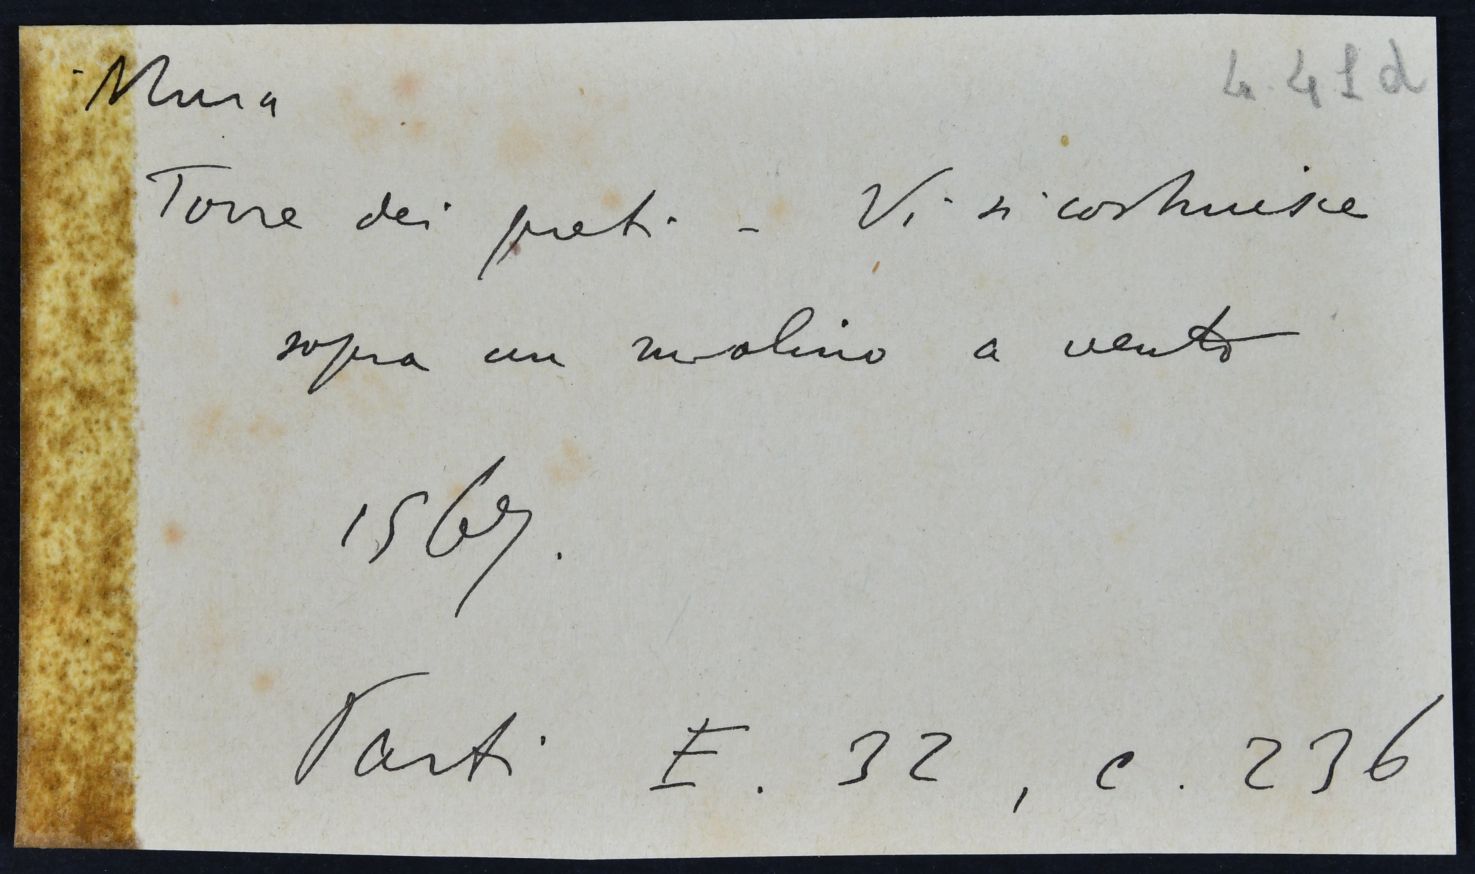 Mura
4.41d
Torre dei preti - Vi si costruisce
sopra un molino a vento
1569.
Parti E. 32, c. 236